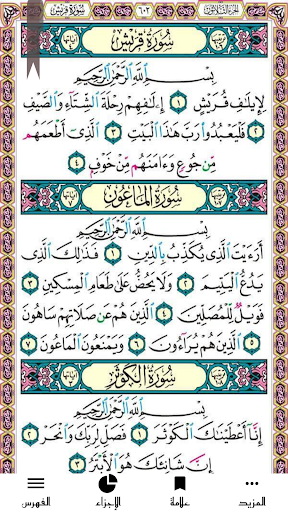 الجزء الثلاثون ٦٠٢ سورة قريش
سُورَةُ قُرَيْشٍ
بِسْمِ ٱللَّهِ ٱلرَّحْمَٰنِ ٱلرَّحِيمِ
لِإِيلَٰفِ قُرَيْشٍ ١ إِۦلَٰفِهِمْ رِحْلَةَ ٱلشِّتَآءِ وَٱلصَّيْفِ
٢ فَلْيَعْبُدُوا۟ رَبَّ هَٰذَا ٱلْبَيْتِ ٣ ٱلَّذِىٓ أَطْعَمَهُم
مِّن جُوعٍ وَءَامَنَهُم مِّنْ خَوْفٍۭ ٤
سُورَةُ المَاعُونِ
بِسْمِ ٱللَّهِ ٱلرَّحْمَٰنِ ٱلرَّحِيمِ
أَرَءَيْتَ ٱلَّذِى يُكَذِّبُ بِٱلدِّينِ ١ فَذَٰلِكَ ٱلَّذِى
يَدُعُّ ٱلْيَتِيمَ ٢ وَلَا يَحُضُّ عَلَىٰ طَعَامِ ٱلْمِسْكِينِ
٣ فَوَيْلٌ لِّلْمُصَلِّينَ ٤ ٱلَّذِينَ هُمْ عَن صَلَاتِهِمْ سَاهُونَ
٥ ٱلَّذِينَ هُمْ يُرَآءُونَ ٦ وَيَمْنَعُونَ ٱلْمَاعُونَ ٧
سُورَةُ الكَوْثَرِ
بِسْمِ ٱللَّهِ ٱلرَّحْمَٰنِ ٱلرَّحِيمِ
إِنَّآ أَعْطَيْنَٰكَ ٱلْكَوْثَرَ ١ فَصَلِّ لِرَبِّكَ وَٱنْحَرْ ٢
إِنَّ شَانِئَكَ هُوَ ٱلْأَبْتَرُ ٣
المزيد علامة الاجزاء الفهرس